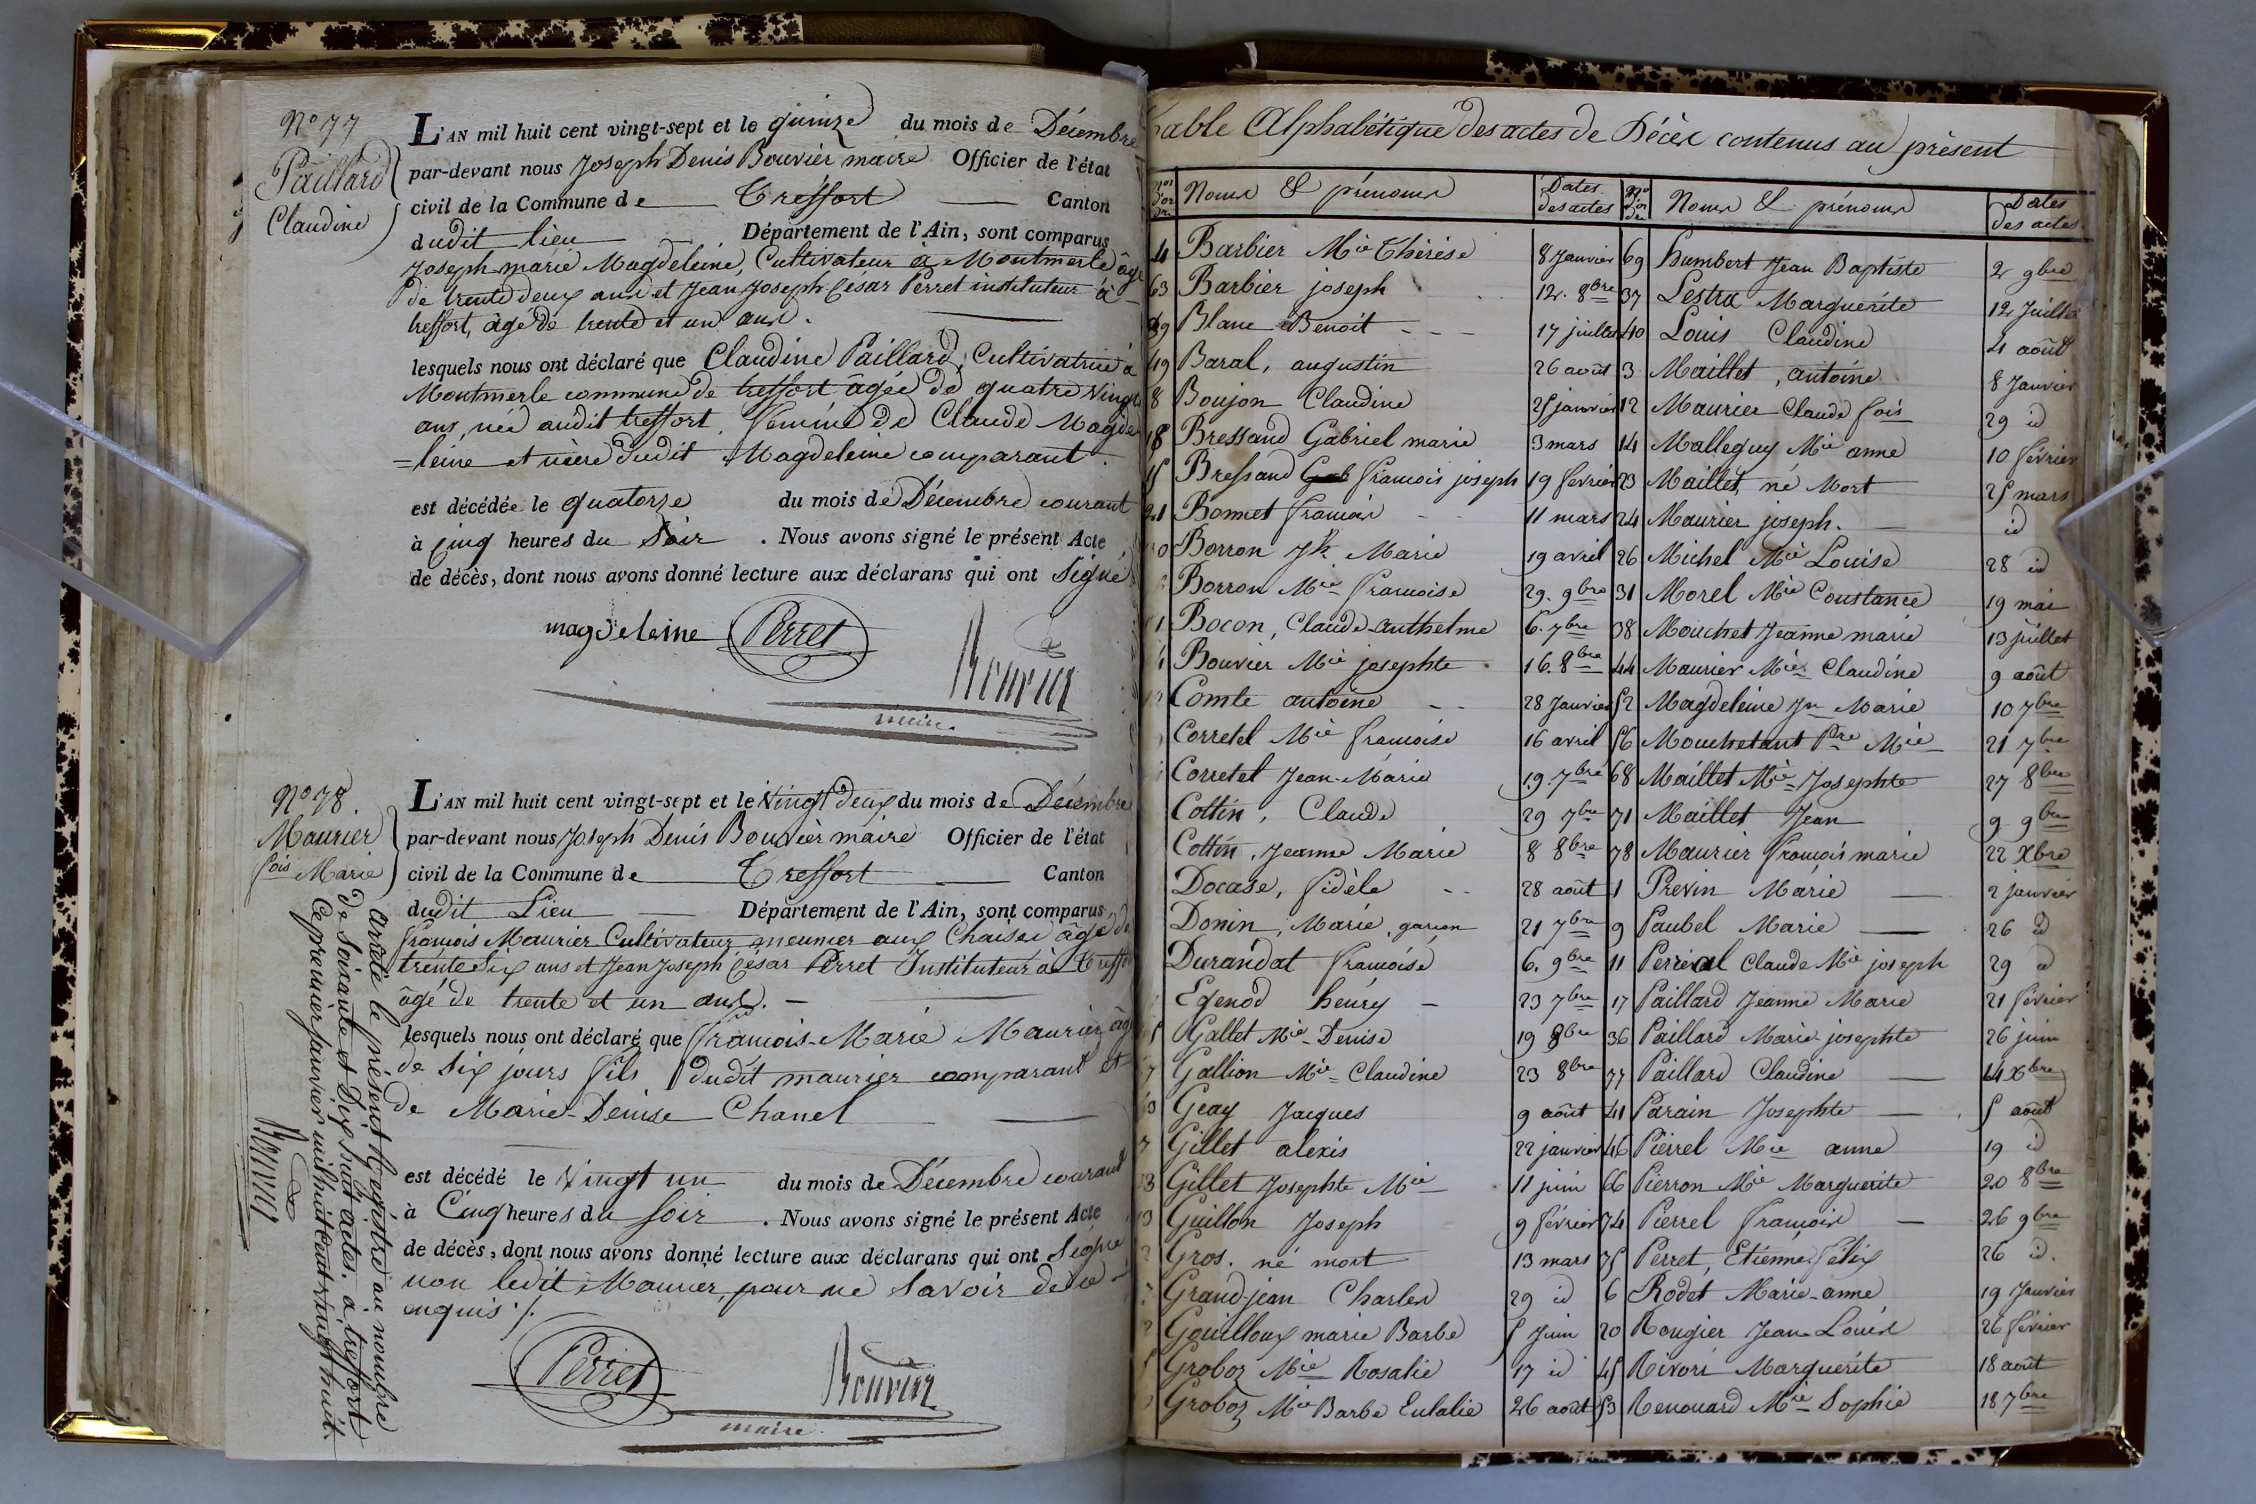 N° 77
Paillard
Claudine
L'AN mil huit cent vingt-sept et le quinze du mois de Décembre
par-devant nous Joseph Denis Bouvier maire Officier de l'état
civil de la Commune de Treffort Canton
dudit lieu Département de l'Ain, sont comparus
Joseph marie Magdeleine, Cultivateur à Montmerle âgé
de trente deux ans et Jean Joseph César Perret instituteur à
treffort, âgé de trente et un ans.
lesquels nous ont déclaré que Claudine Paillard, Cultivatrice à
Montmerle commune de treffort âgée de quatre vingt
ans, née audit treffort. femme de Claude Magde
=leine et mère dudit Magdeleine comparant.
est décédée le quatorze du mois de Décembre courant
à cinq heures du Soir . Nous avons signé le présent Acte
de décès, dont nous avons donné lecture aux déclarans qui ont Signé
magdeleine Perret Bouvier
maire
N° 78.
Maurier
fois Marie
L'AN mil huit cent vingt-sept et le Vingt deux du mois de Décembre
par-devant nous Joseph Denis Bouvier maire Officier de l'état
civil de la Commune de Treffort Canton
dudit Lieu Département de l'Ain, sont comparus
françois Maurier Cultivateur meunier aux Chaises âgé de
trente Six ans et Jean Joseph César Perret Instituteur à Treffort
âgé de trente et un ans. -
lesquels nous ont déclaré que françois-Marie Maurier âgé
de Six jours fils dudit maurier comparant et
de Marie-Denise Chanel
est décédé le Vingt un du mois de Décembre courant
à Cinq heures du soir . Nous avons signé le présent Acte
de décès, dont nous avons donné lecture aux déclarans qui ont Signé
non ledit Maurier, pour ne Savoir de ce
enquis ./.
Perret Bouvier
maire
arrêté le présent Registre au nombre
de Soixante et Dix huit actes. a treffort
Ce premier janvier mil huit cent vingt huit.
Bouvier
Table Alphabétique des actes de Décès contenus au présent
Noms & prénoms Dates des actes Nos d'ordre Noms & prénoms Dates des actes
4 Barbier Mie Thérèse 8 Janvier 69 humbert Jean Baptiste 2 9bre
63 Barbier joseph 12. 8bre 37 Lestra Marguerite 12 Juillet
39 Blanc Benoit - - - 17 juillet 40 Louis Claudine 4 août
49 Baral, augustin 26 août 3 Maillet, antoine 8 Janvier
8 Boujon Claudine 25 janvier 12 Maurier Claude fois 29 id
18 Bressand Gabriel marie 3 mars 14 Malleguy Mie anne 10 février
15 Bressand françois joseph 19 février 23 Maillet, né Mort 25 mars
21 Bonnet françois 11 mars 24 Maurier joseph. id
Borron Jh Marie 19 avril 26 Michel Mie Louise 28 id
Borron Mie françoise 29. 9bre 31 Morel Mie Constance 19 mai
Bocon, Claude-anthelme 6. 7bre 38 Mouchet Jeanne marie 13 juillet
Bouvier Mie josephte 16. 8bre 44 Maurier Mie Claudine 9 août
Comte antoine 28 Janvier 52 Magdeleine Jn Marie 10 7bre
Corretel Mie françoise 16 avril 56 Mouchetant Pre Mie 21 7bre
Corretel Jean-Marie 19. 7bre 68 Maillet Mie Josephte 27 8bre
Cottin, Claude 29 7bre 71 Maillet Jean 9 9bre
Cottin, Jeanne Marie 8 8bre 78 Maurier françois marie 22 Xbre
Docase, fidèle 28 août 1 Previn Marie 2 janvier
Donin, Marie, garçon 21 7bre 9 Paubel Marie 26 id
Durandat françoise 6. 9bre 11 Perréal Claude Mie joseph 29 id
Egenod henry 23 7bre 17 Paillard Jeanne Marie 21 février
Gallet Mie Denise 19 8bre 36 Paillard Marie josephte 26 juin
Gallion Mie Claudine 23 8bre 77 Paillard Claudine 14 Xbre
Geay Jacques 9 août 41 Parain Josephte 5 août
Gillet alexis 22 janvier 46 Pierrel Mie anne 19 id
Gillet Josephte Mie 11 juin 66 Pierron Mie Marguerite 20 8bre
Guillon Joseph 9 février 74 Pierrel françois 26 9bre
Gros. né mort 13 mars 75 Perret, Etienne félix 26 id.
Grandjean Charles 29 id 6 Rodet Marie-anne 19 Janvier
Gouilloux marie Barbe 5 Juin 20 Rougier Jean-Louis 26 février
Groboz Mie Rosalie 17 id 45 Rivori Marguerite 18 août
Groboz Mie Barbe Eulalie 26 août 53 Renouard Mie Sophie 18 7bre